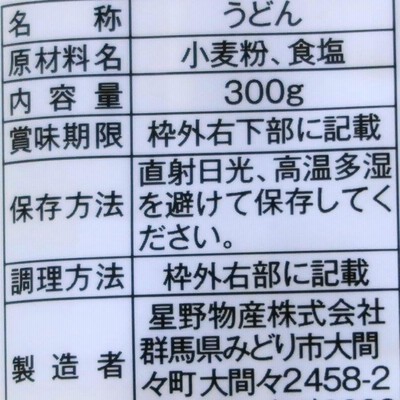 名称 うどん
原材料名 小麦粉、食塩
内容量 300g
賞味期限 枠外右下部に記載
保存方法 直射日光、高温多湿
を避けて保存してく
ださい。
調理方法 枠外右部に記載
製造者 星野物産株式会社
群馬県みどり市大間
々町大間々2458-2